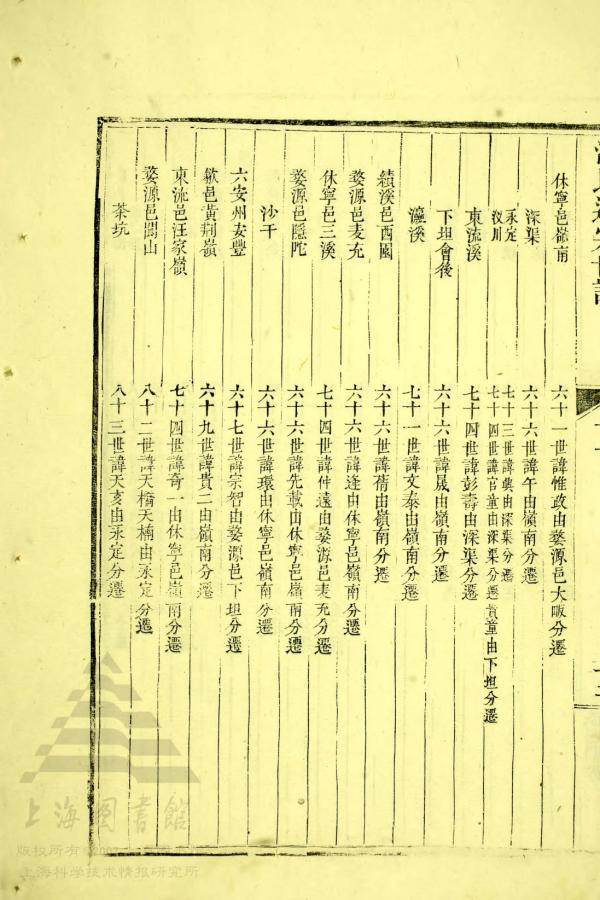 休寧邑嶺南 六十一世諱惟政由婺源邑大畈分遷
深渠 六十六世諱午由嶺南分遷
永定 七十三世諱興由深渠分遷
汊川 七十四世諱官童由深渠分遷貴童由下坦分遷
東流溪 七十四世諱彭壽由深渠分遷
下坦會後 六十六世諱晟由嶺南分遷
瀛溪 七十一世諱文泰由嶺南分遷
績溪邑西園 六十六世諱蒨由嶺南分遷
婺源邑麦充 六十六世諱逢由休寧邑嶺南分遷
休寧邑三溪 七十四世諱仲遠由婺源邑麦充分遷
婺源邑隱陀 六十六世諱先載由休寧邑嶺南分遷
沙干 六十六世諱環由休寧邑嶺南分遷
六安州安豐 六十七世諱宗智由婺源邑下坦分遷
歙邑黃荆嶺 六十九世諱貴二由嶺南分遷
東流邑汪家嶺 七十四世諱奇一由休寧邑嶺南分遷
婺源邑閬山 八十二世諱天橋天楠由永定分遷
茶坑 八十三世諱天亥由永定分遷
上海圖書館
版权所有 2007
上海科学技术情报研究所